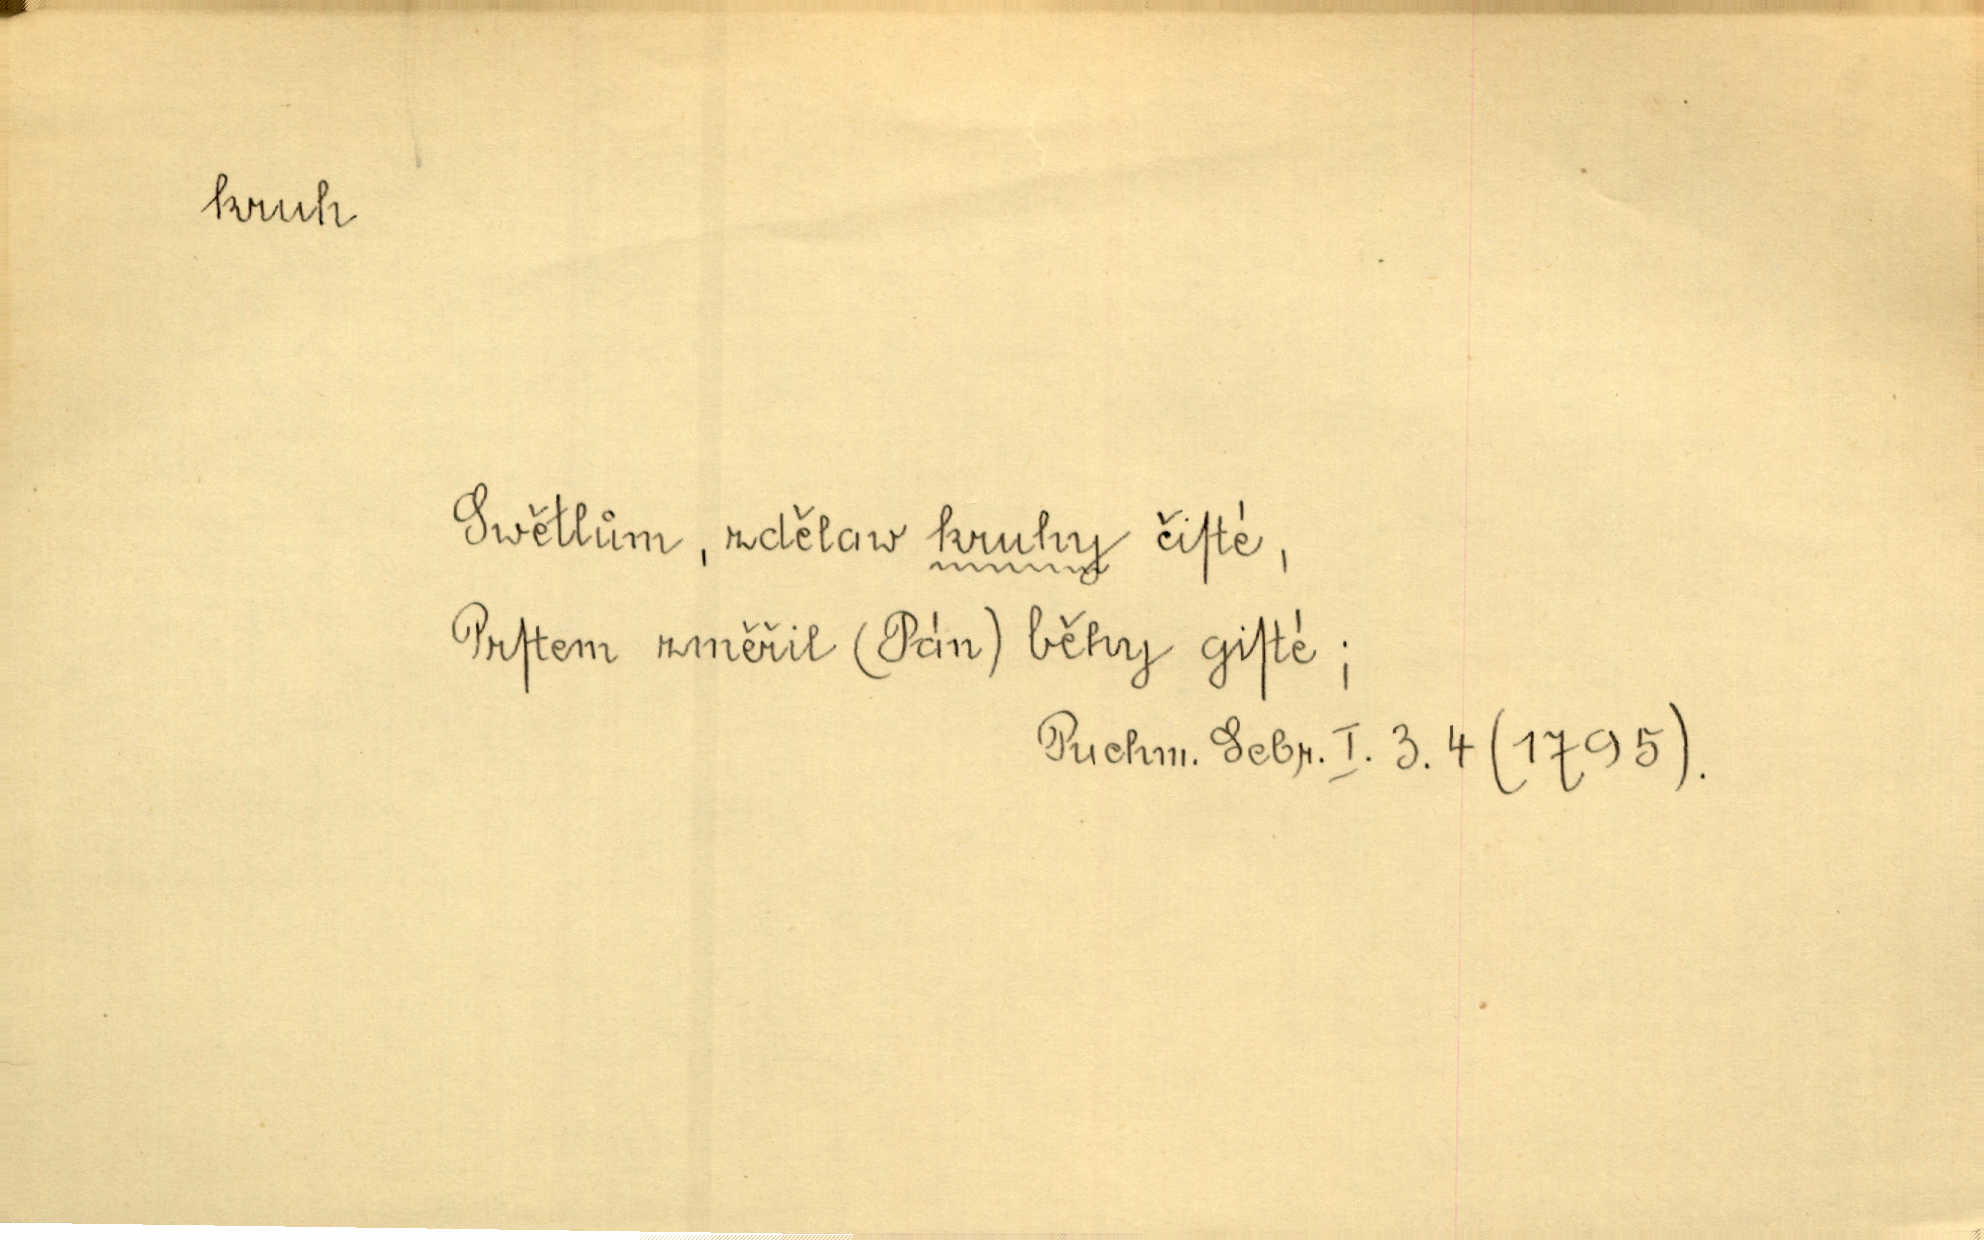 kruh
Swětlům, zdělaw kruhy čiſté,
Prſtem změřil (Pán) běhy giſté;
Puchm. Sebr. I. 3. 4 (1795).